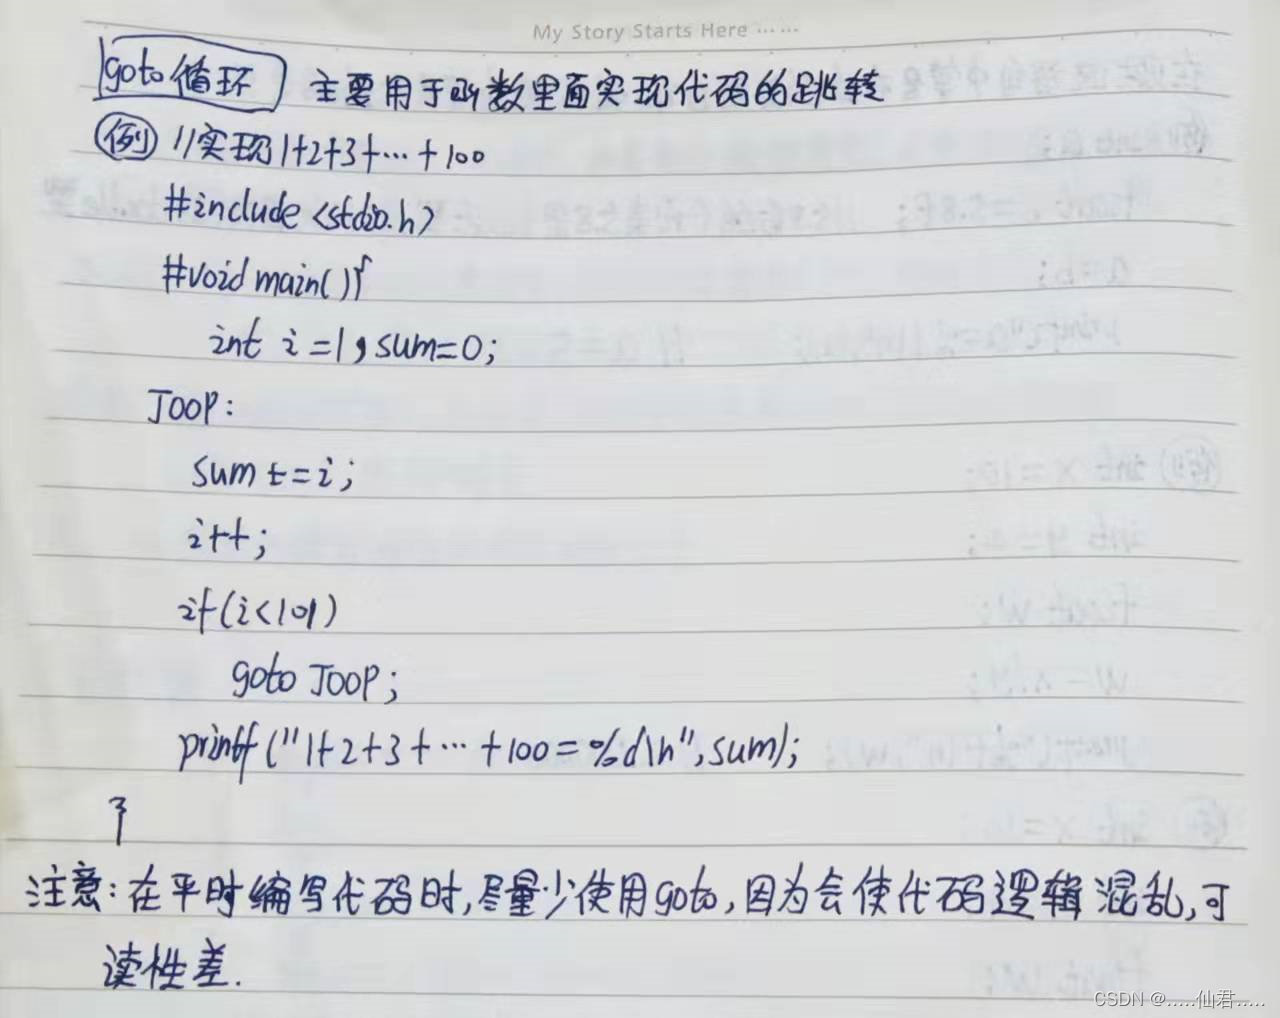 My Story Starts Here ……
goto循环 主要用于函数里面实现代码的跳转
例 //实现1+2+3+…+100
#include <stdio.h>
#void main(){
int i=1,sum=0;
JOOP:
sum+=i;
i++;
if(i<101)
goto JOOP;
printf("1+2+3+…+100=%d\n",sum);
}
注意:在平时编写代码时,尽量少使用goto,因为会使代码逻辑混乱,可
读性差.
CSDN @.....仙君.....